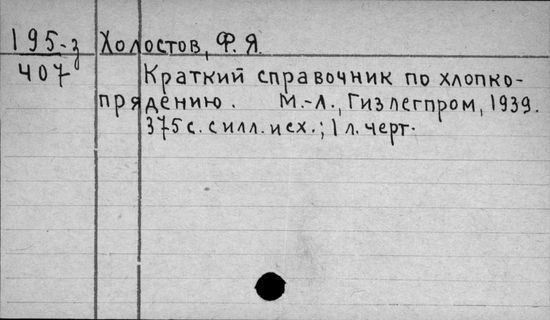 195-з Холостов, Ф. Я.
407 Краткий справочник по хлопко-
прядению. М.-Л., Гизлегпром, 1939.
375 с. с илл. и сх.; 1 л. черт.